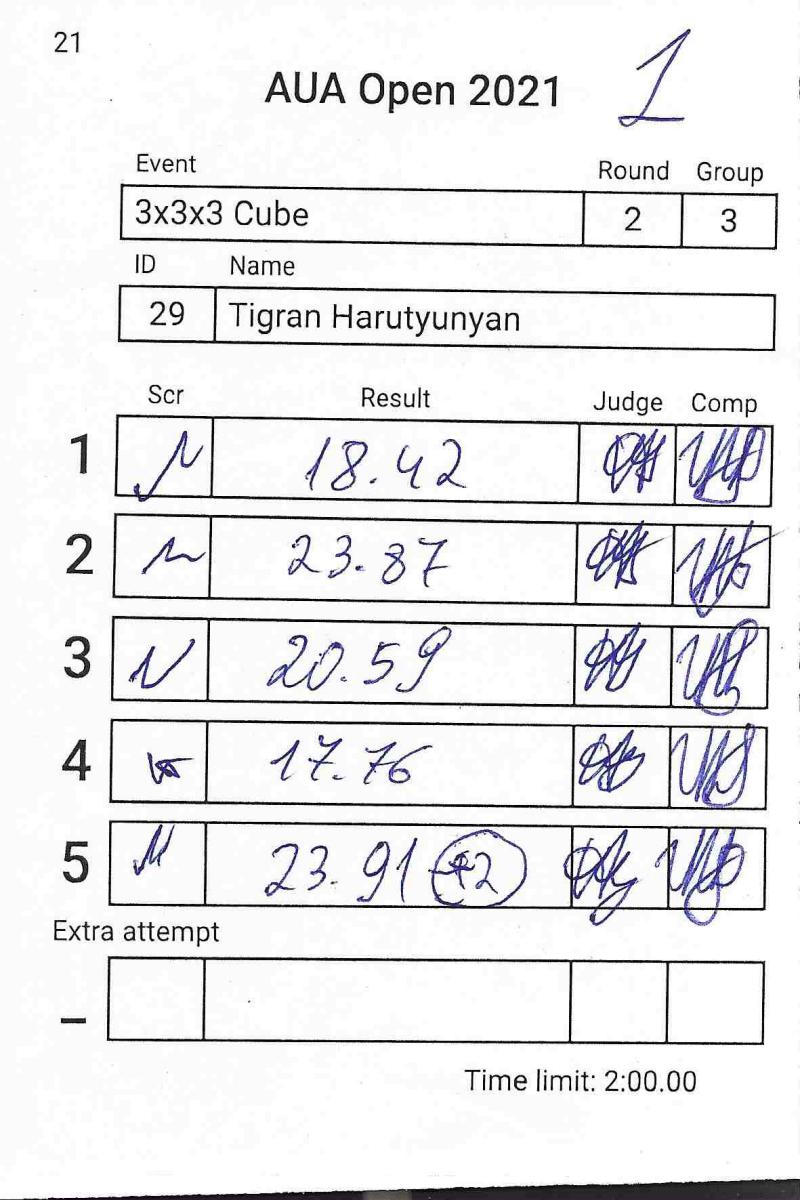 21
AUA Open 2021 1
Event Round Group
3x3x3 Cube 2 3
ID Name
29 Tigran Harutyunyan
Scr Result Judge Comp
1 18.42
2 23.87
3 20.59
4 17.76
5 23.91 +2
Extra attempt
–
Time limit: 2:00.00